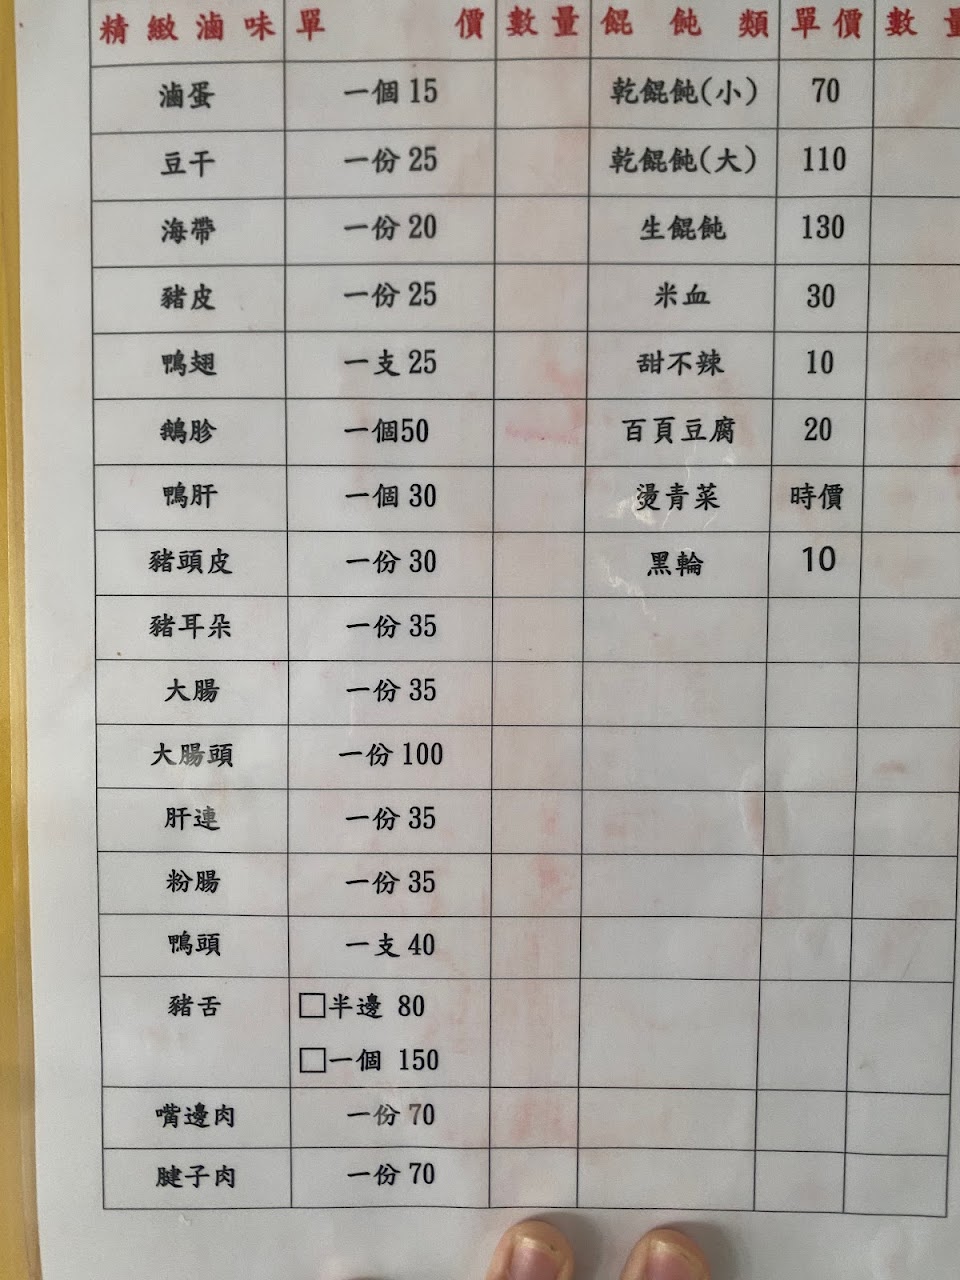 精緻滷味 單價 數量 餛飩類 單價 數量
滷蛋 一個 15 乾餛飩(小) 70
豆干 一份 25 乾餛飩(大) 110
海帶 一份 20 生餛飩 130
豬皮 一份 25 米血 30
鴨翅 一支 25 甜不辣 10
鵝胗 一個50 百頁豆腐 20
鴨肝 一個 30 燙青菜 時價
豬頭皮 一份 30 黑輪 10
豬耳朵 一份 35
大腸 一份 35
大腸頭 一份 100
肝連 一份 35
粉腸 一份 35
鴨頭 一支 40
豬舌 □半邊 80
□一個 150
嘴邊肉 一份 70
腱子肉 一份 70